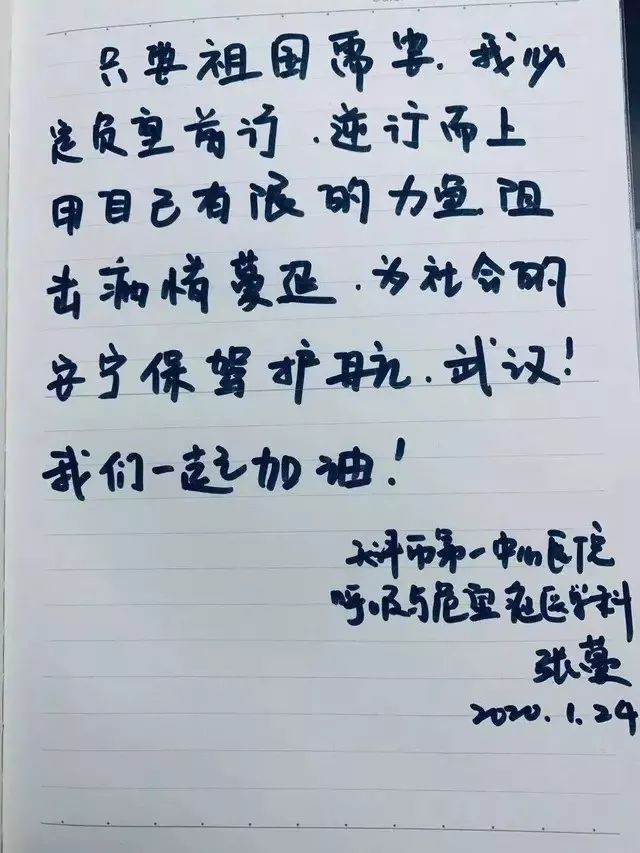 只要祖国需要.我必
定负重前行.逆行而上
用自己有限的力量阻
击病情蔓延.为社会的
安宁保驾护航.武汉!
我们一起加油!
天津市第一中心医院
呼吸与危重症医学科
张蔓
2020.1.24